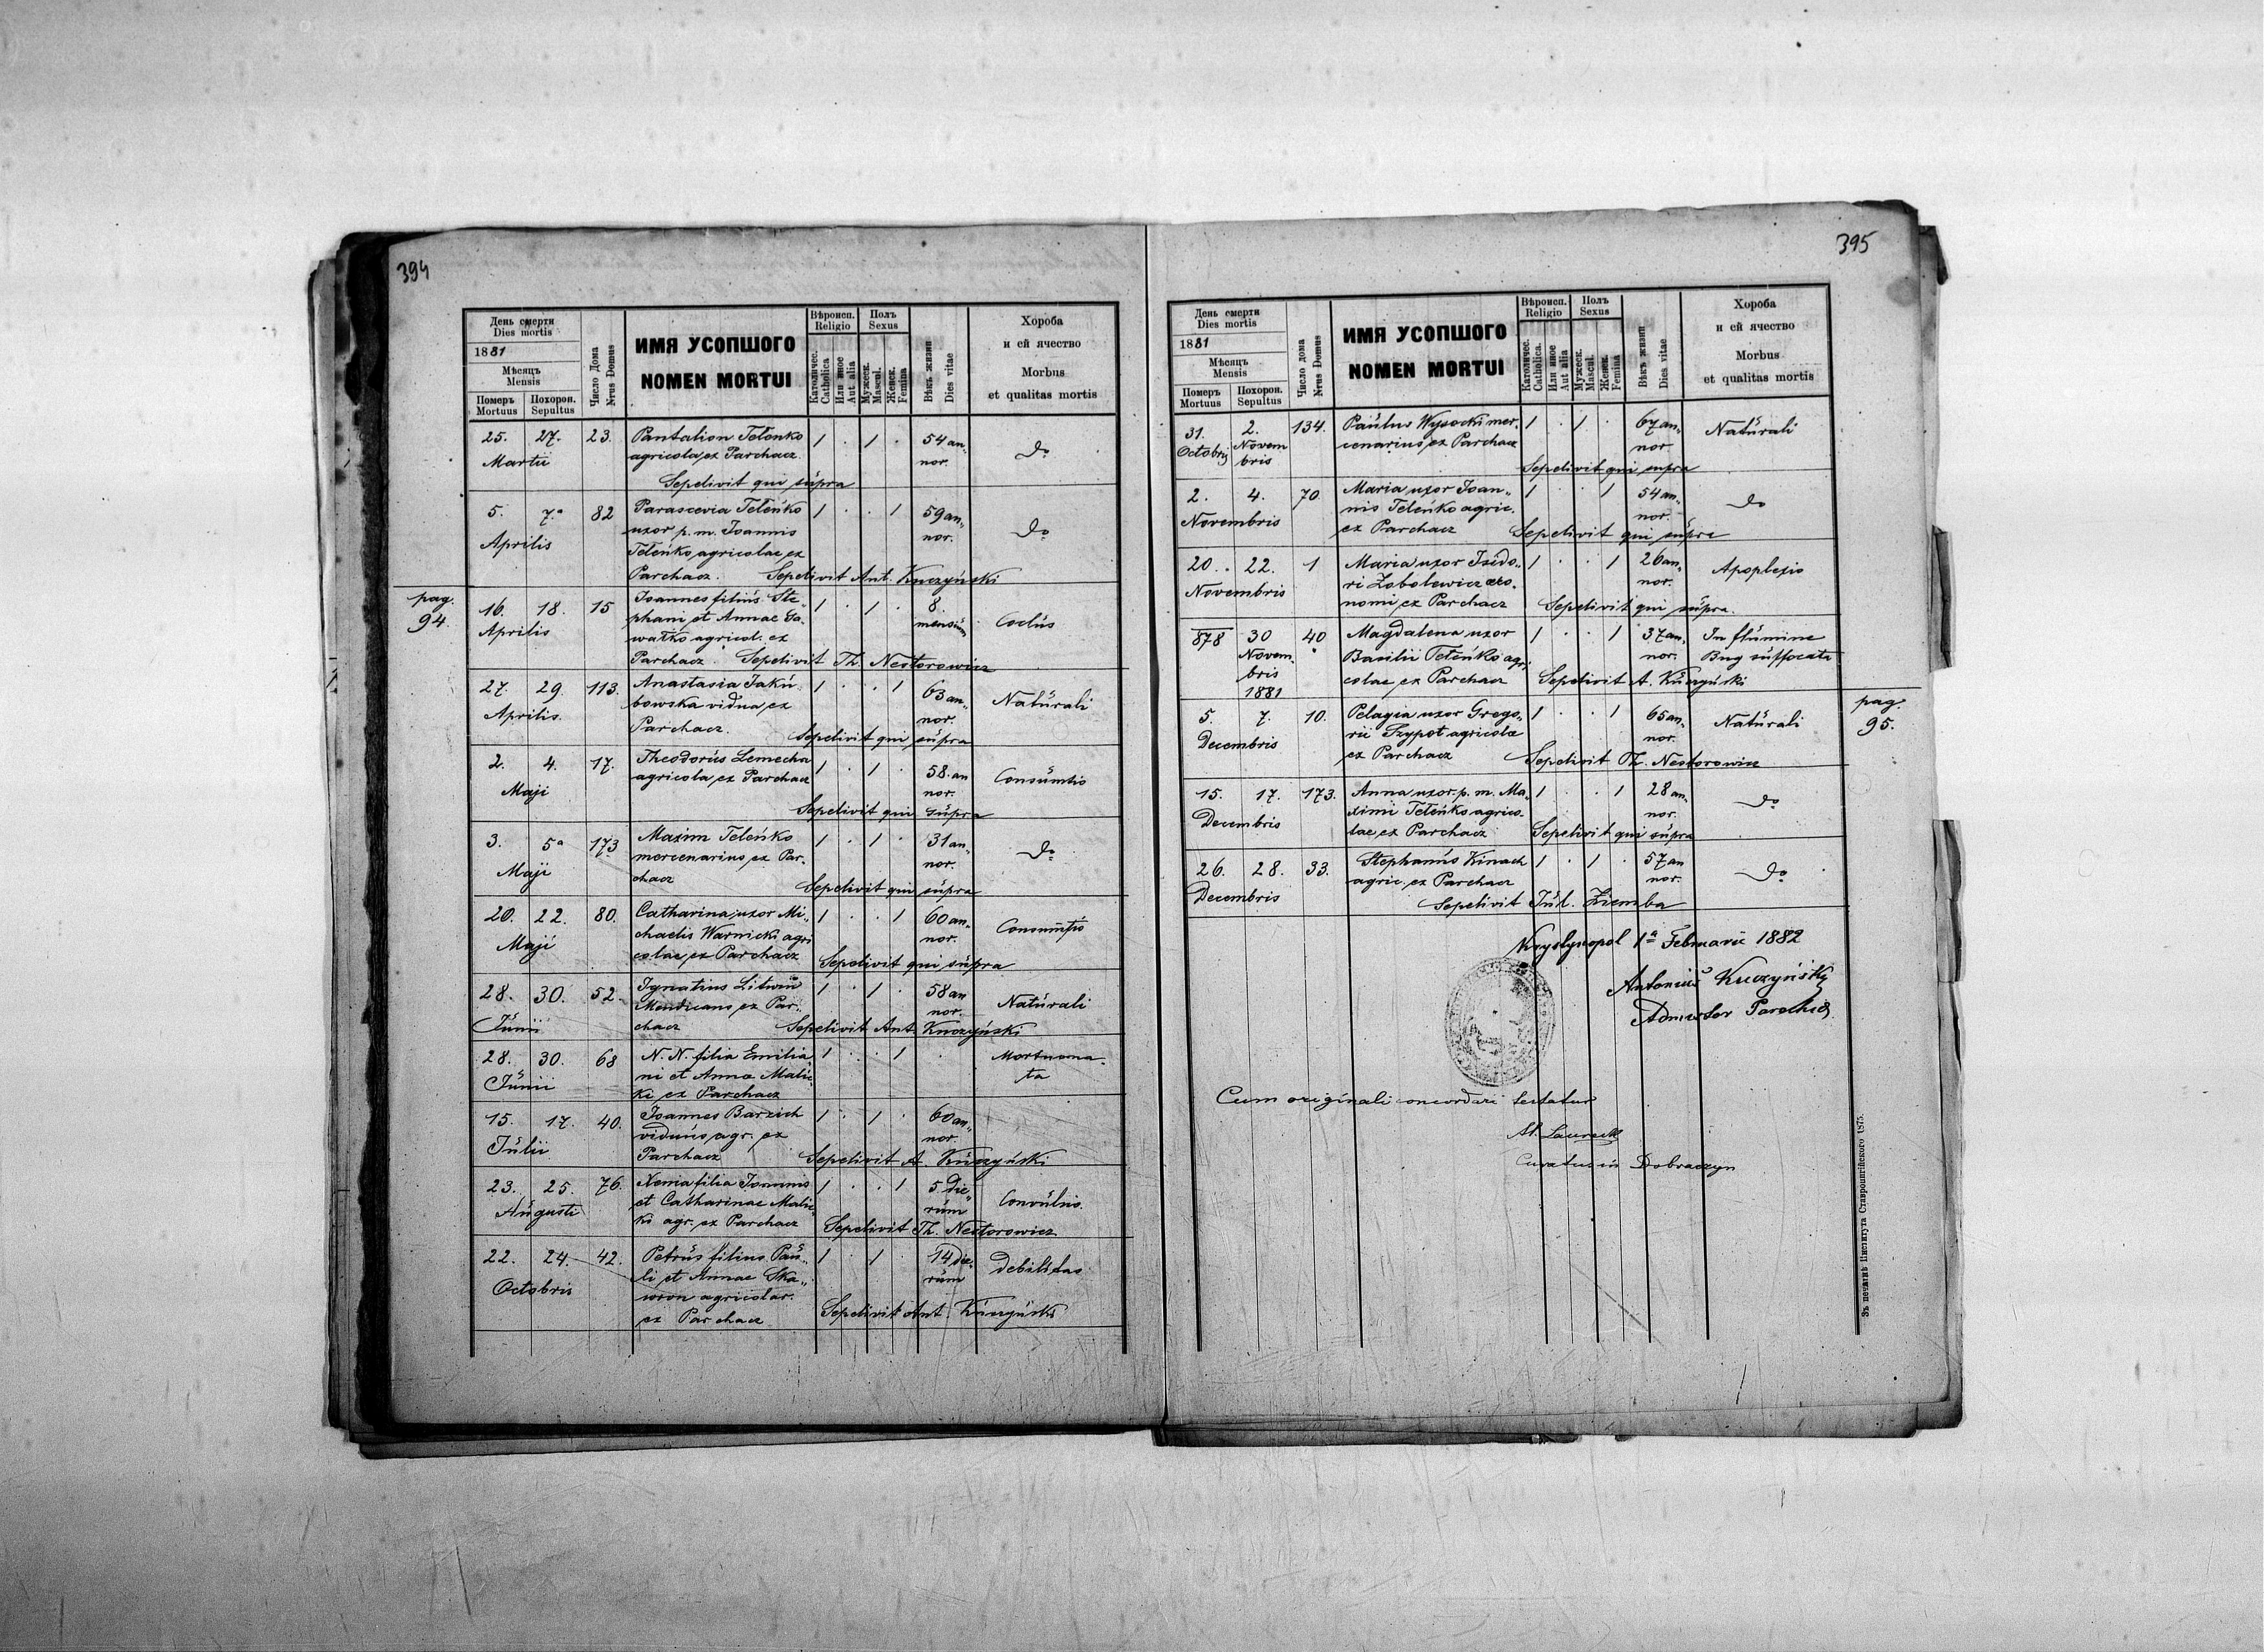 394
День смерти
Dies mortis
1881
Мѣсяцъ
Mensis
Померъ
Mortuus
Похорон.
Sepultus
Число Дома
Nrus Domus
ИМЯ УСОПШОГО
NOMEN MORTUI
Вѣроисп.
Religio
Католичес.
Catholica
Или иное
Aut alia
Полъ
Sexus
Мужеск.
Mascul.
Женск.
Femina
Вѣкъ жизни
Dies vitae
Хороба
и ей ячество
Morbus
et qualitas mortis
25. 27. 23. Pantalion Teleńko 1 . 1 . 54 an„
Martii agricola, ex Parchacz. nor. do
Sepelivit qui supra
5. 7.a 82 Parascevia Teleńko 1 . . 1 59 an„
Aprilis uxor p. m. Joannis nor. do
Teleńko, agricolae, ex
Parchacz. Sepelivit Ant. Kuczyński
pag.
94.
16. 18. 15 Joannes filius Ste„ 1 . 1 . 8.
Aprilis phani et Annae Ga„ mensium Coclus
watko agricol. ex
Parchacz. Sepelivit Th. Nestorowicz
27. 29. 113. Anastasia Jaku 1 . . 1 63 an„
Aprilis. bowska vidua, ex nor. Naturali
Parchacz. Sepelivit qui supra
2. 4. 17. Theodorus Lemecha 1 . 1 . 58. an
Maji agricola, ex Parchacz nor. Consumtio
Sepelivit qui supra
3. 5a 173 Maxim Teleńko 1 . 1 . 31 an„
Maji mercenarius, ex Par„ nor. do
chacz Sepelivit qui supra
20. 22. 80. Catharina, uxor Mi„ 1 . . 1 60 an„
Maji chaelis Warnicki agri nor. Consumtio
colae, ex Parchacz Sepelivit qui supra
28. 30. 52. Ignatius Litwin 1 . 1 . 58 an
Junii Mendicans, ex Par„ nor. Naturali
chacz Sepelivit Ant. Kuczyński
28. 30. 68 N. N. filia Emilia 1 . . 1 . Mortuona„
Junii ni et Anna Malic ta
ki ex Parchacz
15. 17. 40. Joannes Barzich 1 . 1 . 60 an„
Julii viduus, agr. ex nor.
Parchacz Sepelivit A. Kuczyński
23. 25. 76. Xenia filia Joannis 1 . . 1 5. Die„
Augusti et Catharinae Malic„ rum Convulsio.
ki agr. ex Parchacz Sepelivit Th. Nestorowicz
22. 24. 42. Petrus filius Pau„ 1 . 1 . 14 die„
Octobris li et Annae Ska„ rum debilitas
woron agricolar.
ex Parchacz Sepelivit Ant. Kuczyński
395
День смерти
Dies mortis
1881
Мѣсяцъ
Mensis
Померъ
Mortuus
Похорон.
Sepultus
Число дома
Nrus Domus
ИМЯ УСОПШОГО
NOMEN MORTUI
Вѣроисп.
Religio
Католичес.
Catholica.
Или иное
Aut alia
Полъ
Sexus
Мужеск.
Mascul.
Женск.
Femina
Вѣкъ жизни
Dies vitae
Хороба
и ей ячество
Morbus
et qualitas mortis
31. 2. 134. Paulus Wysocki mer„ 1 . 1 . 67 an„
Octobris Novem cenarius, ex Parchacz nor. Naturali
bris Sepelivit qui supra
2. 4. 70. Maria uxor Joan„ 1 . . 1 54 an„
Novembris nis Teleńko agric. nor. do
ex Parchacz Sepelivit qui supra
20. 22. 1 Maria uxor Isido„ 1 . . 1 26 an„
Novembris ri Zobolewicz oeco„ nor. Apoplexio
nomi ex Parchacz Sepelivit qui supra.
878 30 40 Magdalena uxor 1 . . 1 37 an„ In flumine
Novem„ Basilii Teleńko agri nor. Bug suffocata
bris colae ex Parchacz Sepelivit A. Kuczyński
1881
5. 7. 10. Pelagia uxor Grego„ 1 . . 1 65 an„
Decembris rii Szypot agricolae nor. Naturali
ex Parchacz Sepelivit Th. Nestorowicz
pag.
95.
15. 17. 173. Anna, uxor p. m. Ma„ 1 . . 1 28 an„
Decembris ximi Teleńko agrico„ nor. do
lae ex Parchacz Sepelivit qui supra
26. 28. 33. Stephanus Kinach 1 . 1 . 57 an
Decembris agric. ex Parchacz nor. do
Sepelivit Jul. Ziemba
Krystynopol 1a Februarii 1882
Antonius Kuczyński
Adm̅stor Parochiae
Cum originali concordari testatur
Al. Laurecki
Curatus in Dobraczyn
Зъ печатнѣ Института Ставропигійского 1875.